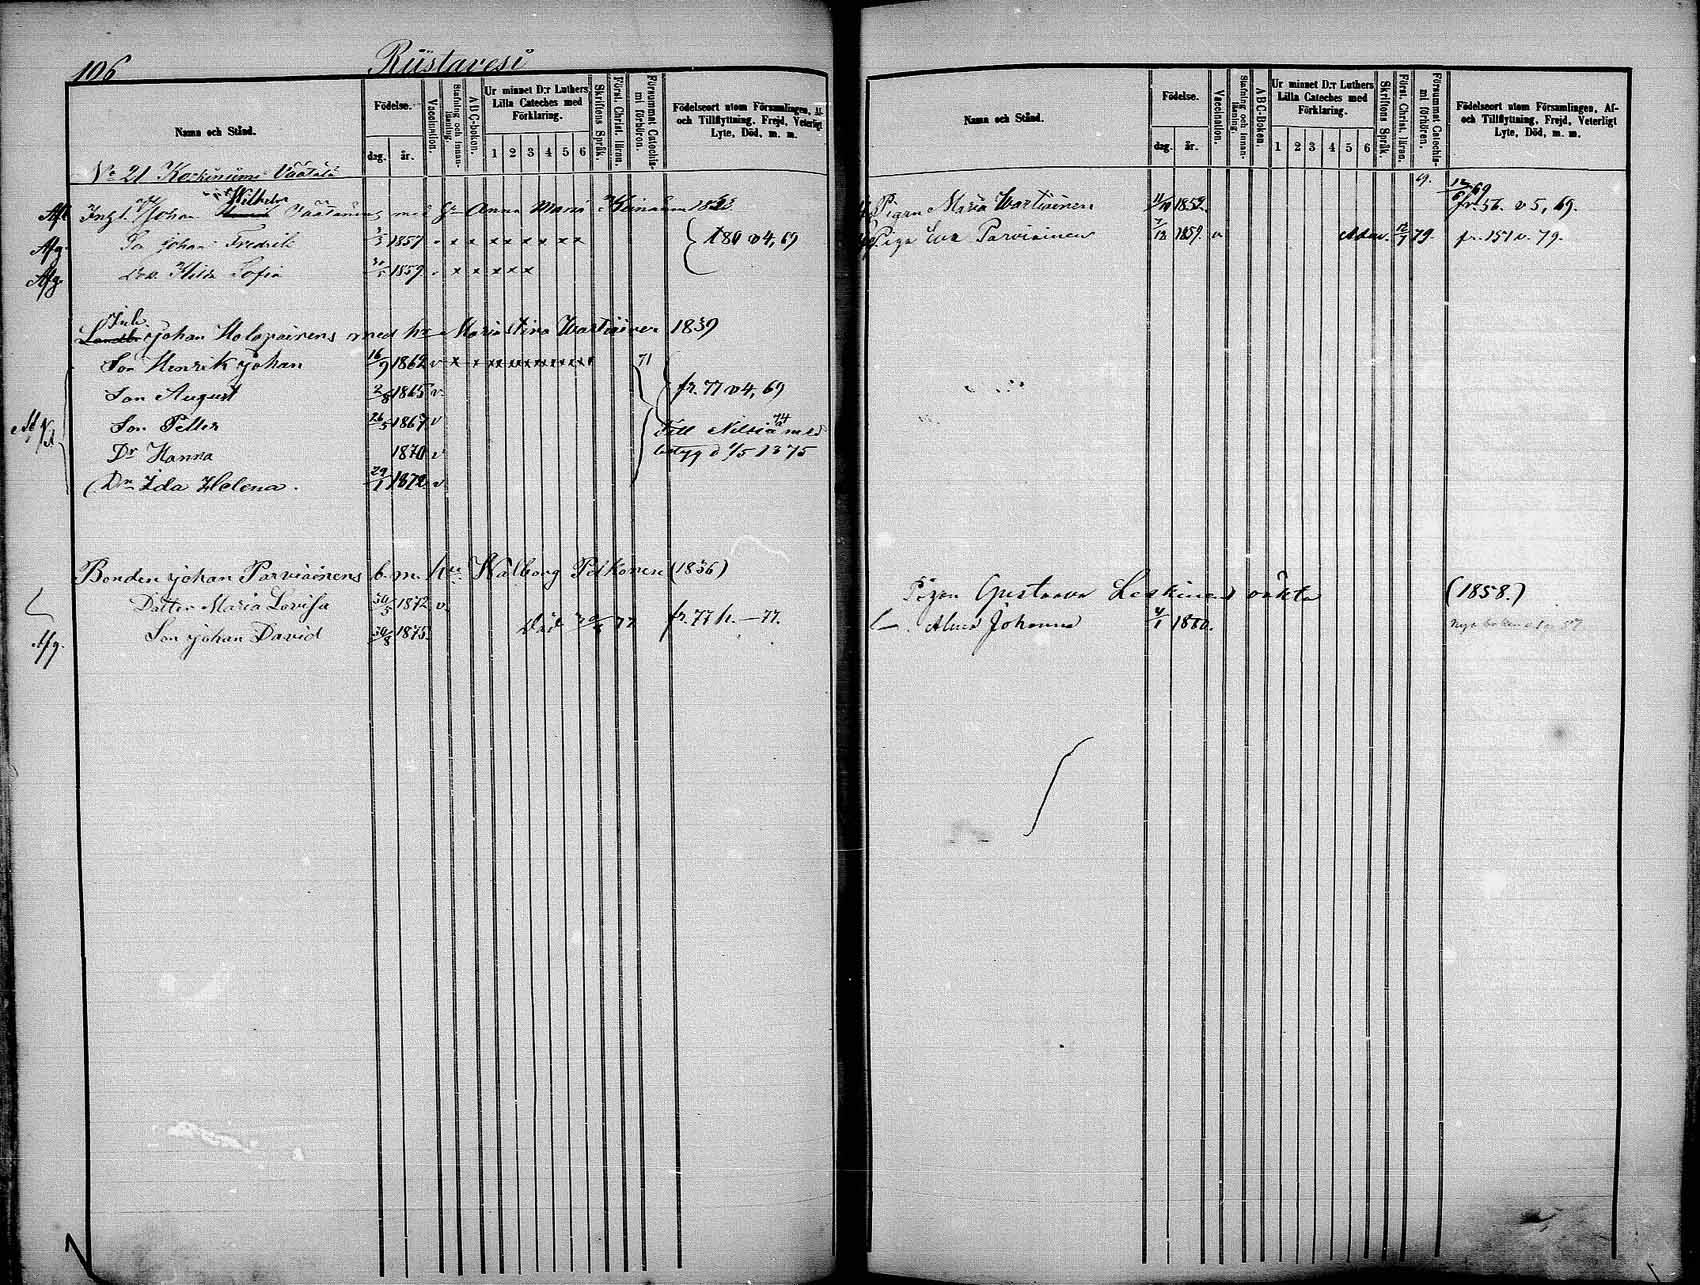 106
Riistavesi
Nama och Stånd.
Födelse.
dag.
år.
Vaccination.
Stafning och Innanläsning.
ABC-boken.
Ur minnet D:r Luthers Lilla Cateches med Förklaring.
1 2 3 4 5 6
Skriftens Språk.
Först. Christ. läran.
Försummat Catechismi förhören.
Födelseort utom Församlingen, Af-
och Tillflyttning, Frejd, Veterligt
Lyte, Död, m. m.
No 21
Johan Wilhelm Anna Maria
Afg. Son Johan Fredrik 1857 x x x x x x x 180 v 4, 69
Afg. Hilda Sofia 1859 x x x x x
Inh.
Johan Holopainens med h:u Maria Stina Wartiainen 1839
Son Henrik Johan 16/9 1862 v x x x x x x x x x 71
Son August 2/8 1865 v fr. 77 v 4, 69
Son Petter 26/5 1867 v Till Nilsiä med
Dr Hanna 1870 v betyg d 1/5 1875
Dr Ida Helena. 29/1 1872 v
Bonden Johan Parviainens b. m. h:u Walborg Pelkonen (1836)
Dotter Maria Lovisa 30/5 1872 v. fr. 77 h. — 77.
Afg. Son Johan David 30/8 1875. Död 77
Nama och Stånd.
Födelse.
dag.
år.
Vaccination.
Stafning och Innanläsning.
ABC-Boken.
Ur minnet D:r Luthers Lilla Cateches med Förklaring.
1 2 3 4 5 6
Skriftens Språk.
Först. Christ. läran.
Försummat Catechismi förhören.
Födelseort utom Församlingen, Af-
och Tillflyttning, Frejd, Veterligt
Lyte, Död, m. m.
Pigan Maria Wartiainen 1852. fr. 56. v 5, 69.
Piga Eva Parviainen 1859. v 79. fr. 151 v. 79.
Pigan Gustaava Leskinens oäkta (1858.)
Alma Johanna 1880.